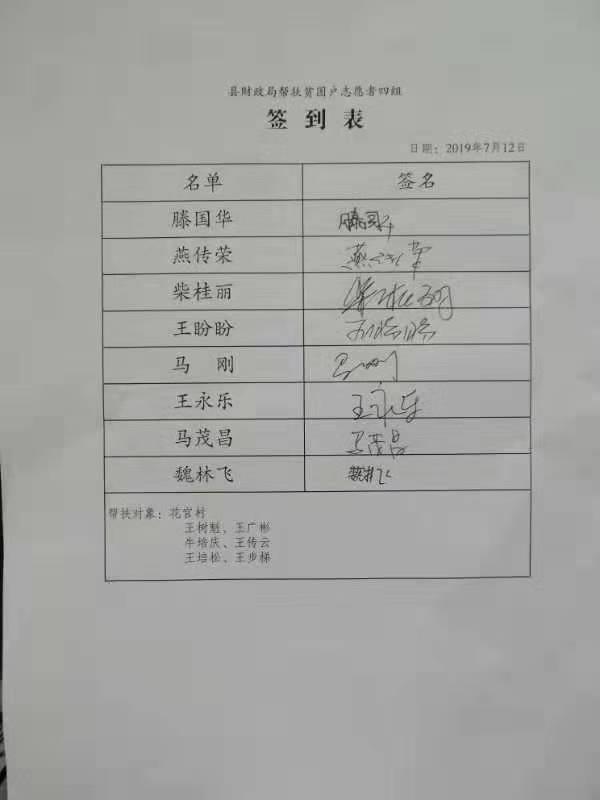 县财政局帮扶贫困户志愿者四组
签到表
日期：2019年7月12日
名单 签名
滕国华 滕国华
燕传荣 燕传荣
柴桂丽 柴桂丽
王盼盼 王盼盼
马 刚 马刚
王永乐 王永乐
马茂昌 马茂昌
魏林飞 魏林飞
帮扶对象：花官村
王树魁、王广彬
牛培庆、王传云
王培松、王步梯